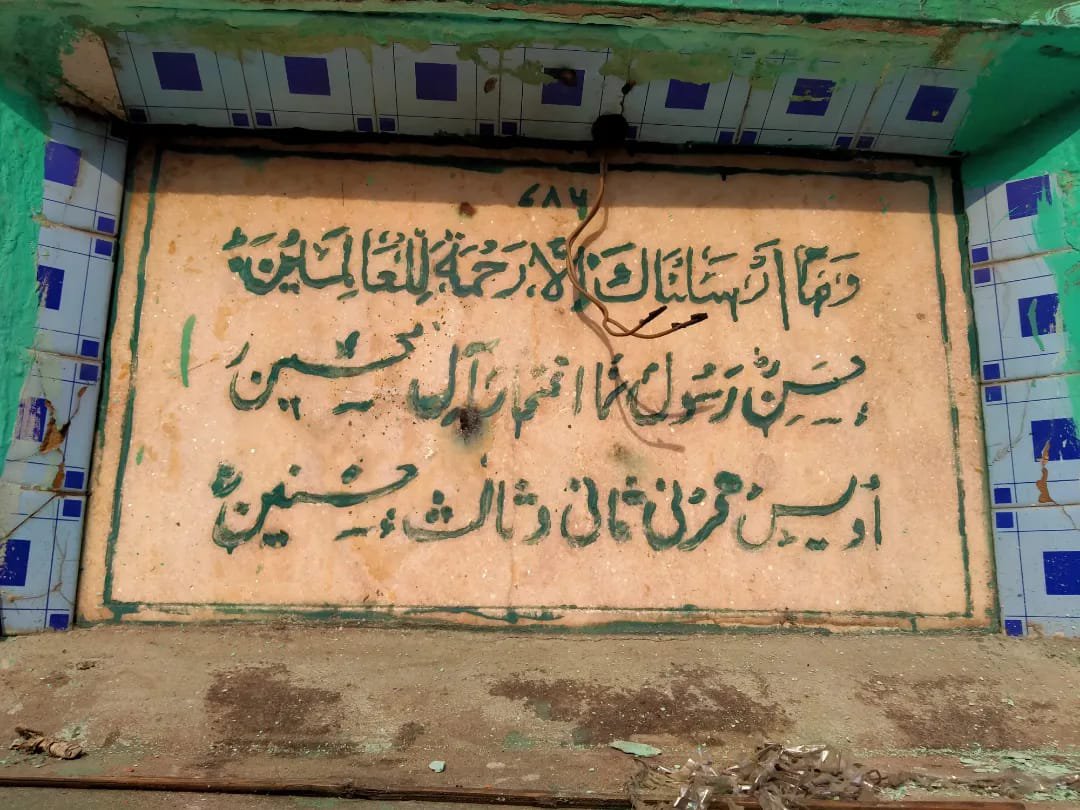 ۷۸۶
وَمَآ اَرْسَلْنَاكَ اِلَّا رَحْمَةً لِّلْعَالَمِیْنَ
حَسَنِ رَسُوْل نما افتخار آل حسین
اُویسِ قرنی ثانی و ثالث حسنین